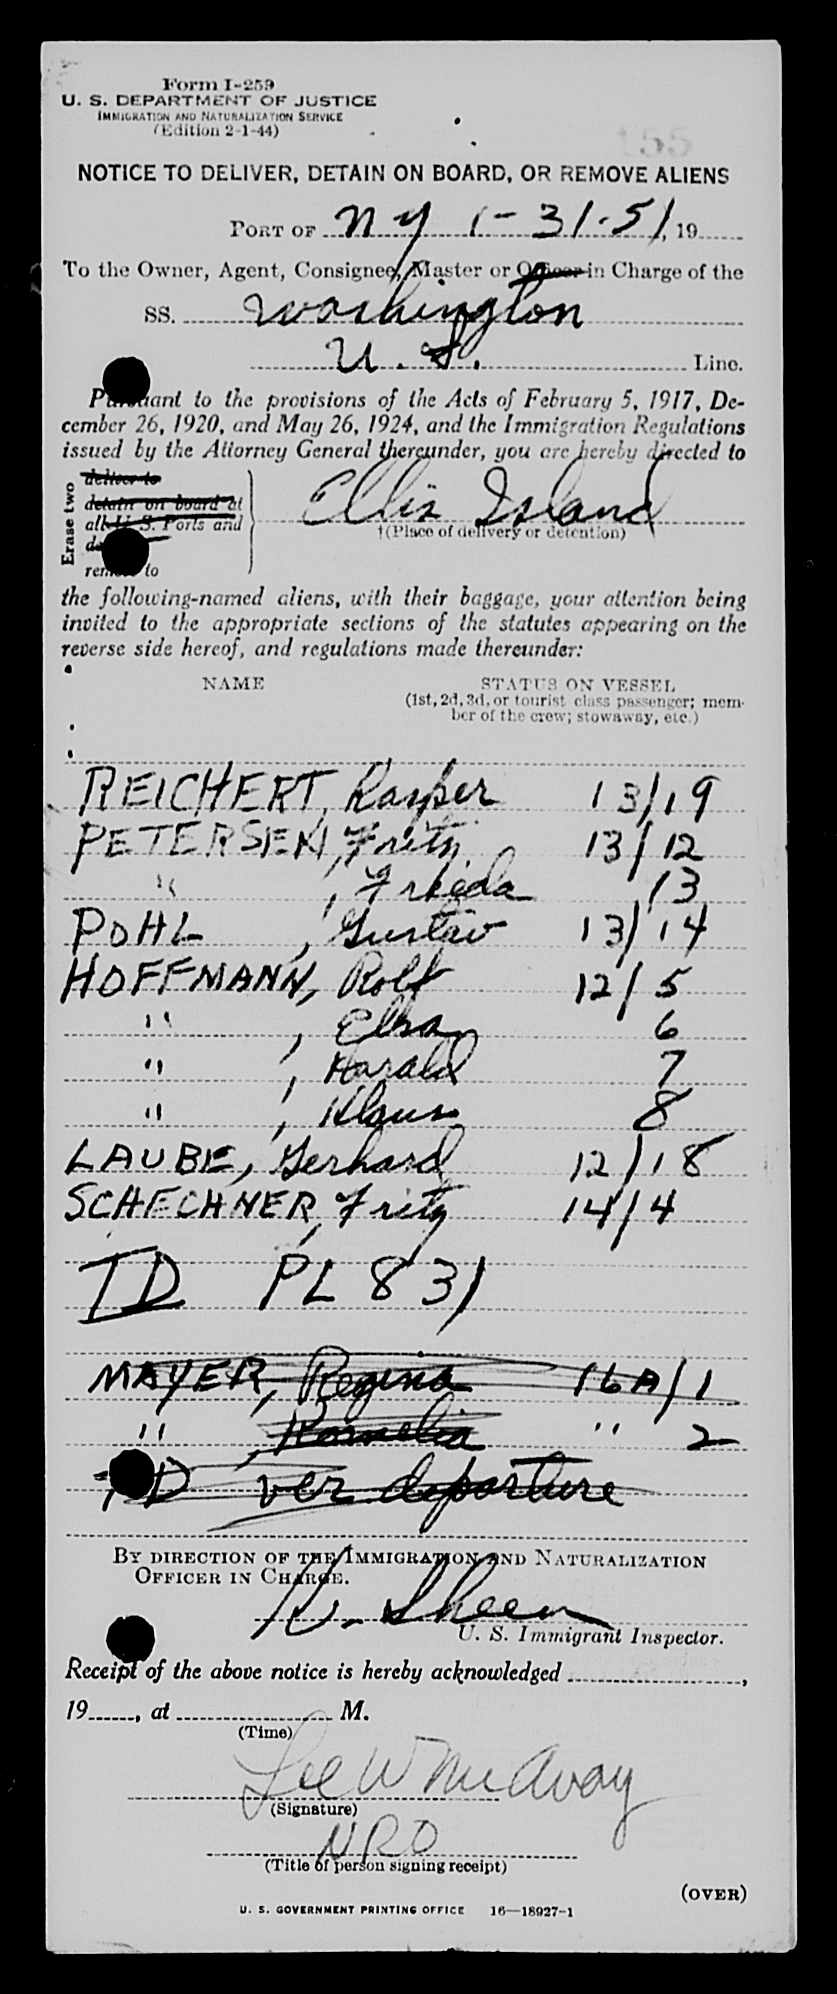 Form I-259
U. S. DEPARTMENT OF JUSTICE
IMMIGRATION AND NATURALIZATION SERVICE
(Edition 2-1-44)
155
NOTICE TO DELIVER, DETAIN ON BOARD, OR REMOVE ALIENS
PORT OF NY 1-31-51, 19
To the Owner, Agent, Consignee, Master or Officer in Charge of the
SS. Washington
U. S. Line.
Pursuant to the provisions of the Acts of February 5, 1917, De-
cember 26, 1920, and May 26, 1924, and the Immigration Regulations
issued by the Attorney General thereunder, you are hereby directed to
Erase two
deliver to
detain on board at
all U. S. Ports and
remove to
Ellis Island
†(Place of delivery or detention)
the following-named aliens, with their baggage, your attention being
invited to the appropriate sections of the statutes appearing on the
reverse side hereof, and regulations made thereunder:
NAME STATUS ON VESSEL
(1st, 2d, 3d, or tourist class passenger; mem-
ber of the crew; stowaway, etc.)
REICHERT, Kasper 13/19
PETERSEN, Fritz 13/12
" , Frieda 13
POHL , Gustav 13/14
HOFFMANN, Rolf 12/5
" , Elsa 6
" , Harald 7
" , Klaus 8
LAUBE, Gerhard 12/18
SCHECHNER, Fritz 14/4
TD PL 831
MAYER, Regina 16A/1
" , Kornelia " 2
TD ver departure
BY DIRECTION OF THE IMMIGRATION AND NATURALIZATION
OFFICER IN CHARGE.
Sheen
U. S. Immigrant Inspector.
Receipt of the above notice is hereby acknowledged ,
19 , at M.
(Time)
Lee W McAvoy
(Signature)
NRO
(Title of person signing receipt)
(OVER)
U. S. GOVERNMENT PRINTING OFFICE 16—18927-1